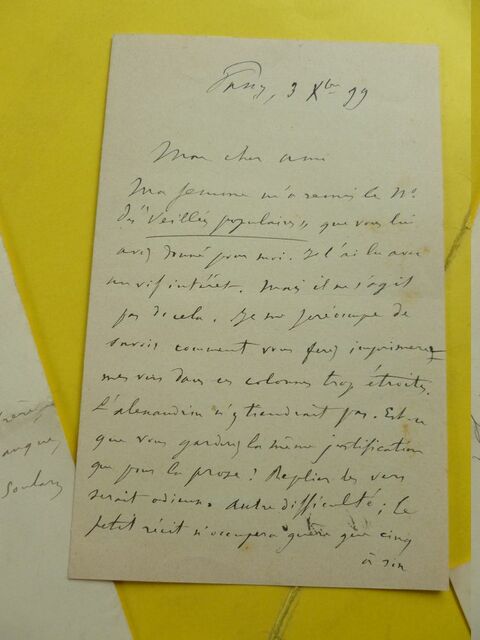 Passy, 3 Xbre 99
Mon cher ami
Ma femme m'a remis le No
des "Veillées populaires" que vous lui
avez donné pour moi. Je l'ai lu avec
un vif intérêt. Mais il ne s'agit
pas de cela. Je me préoccupe de
savoir comment vous ferez imprimer
mes vers dans ces colonnes trop étroites.
L'alexandrin n'y tiendrait pas. Est-ce
que vous gardez la même justification
que pour la prose? Replier les vers
serait odieux. Autre difficulté; le
petit récit n'occupera guère que cinq
à six
Soulary